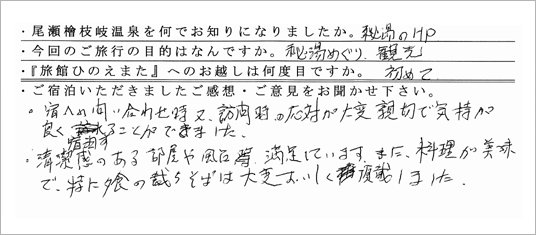 ・尾瀬檜枝岐温泉を何でお知りになりましたか。秘湯のHP
・今回のご旅行の目的はなんですか。秘湯めぐり、観光
・『旅館ひのえまた』へのお越しは何度目ですか。初めて
・ご宿泊いただきましたご感想・ご意見をお聞かせ下さい。
。宿への問い合わせ時又、訪問時の応対が大変親切で気持が
良く宿泊することができました。
。清潔感のある部屋や風呂等、満足しています。また、料理が美味
で、特に夕食の裁ちそばは大変おいしく頂戴しました。